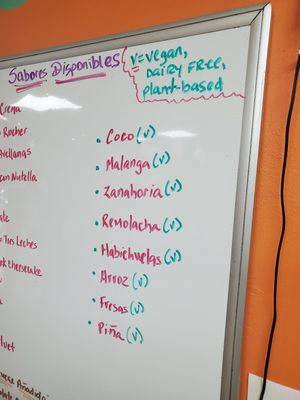 Sabores Disponibles
V=Vegan,
DAIRY FREE,
plant-based
Crema
Rocher
Avellanas
Nutella
Tres Leches
cheesecake
• Coco (v)
• Malanga (v)
• Zanahoria (v)
• Remolacha (v)
• Habichuelas (v)
• Arroz (v)
• Fresas (v)
• Piña (v)